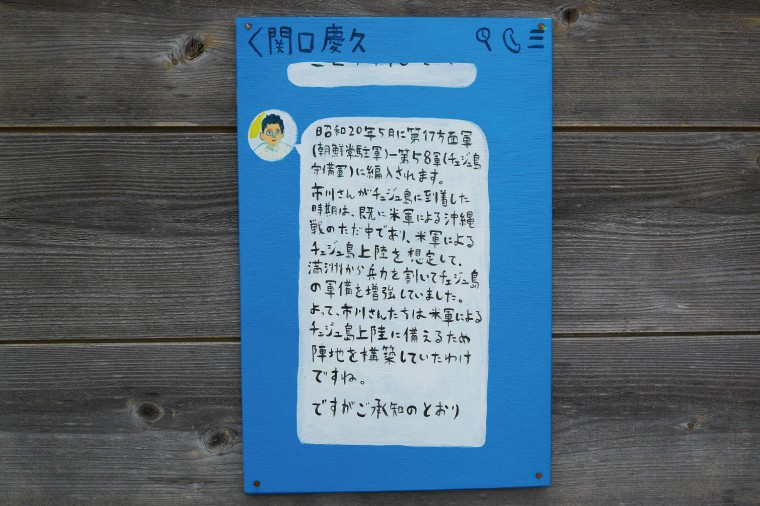 関口慶久
昭和20年5月に第17方面軍
(朝鮮常駐軍)ー第58軍(チェジュ島
守備軍)に編入されます。
市川さんがチェジュ島に到着した
時期は、既に米軍による沖縄
戦のただ中であり、米軍による
チェジュ島上陸を想定して、
満洲から兵力を割いてチェジュ島
の軍備を増強していました。
よって、市川さんたちは米軍による
チェジュ島上陸に備えるため
陣地を構築していたわけ
ですね。
ですがご承知のとおり